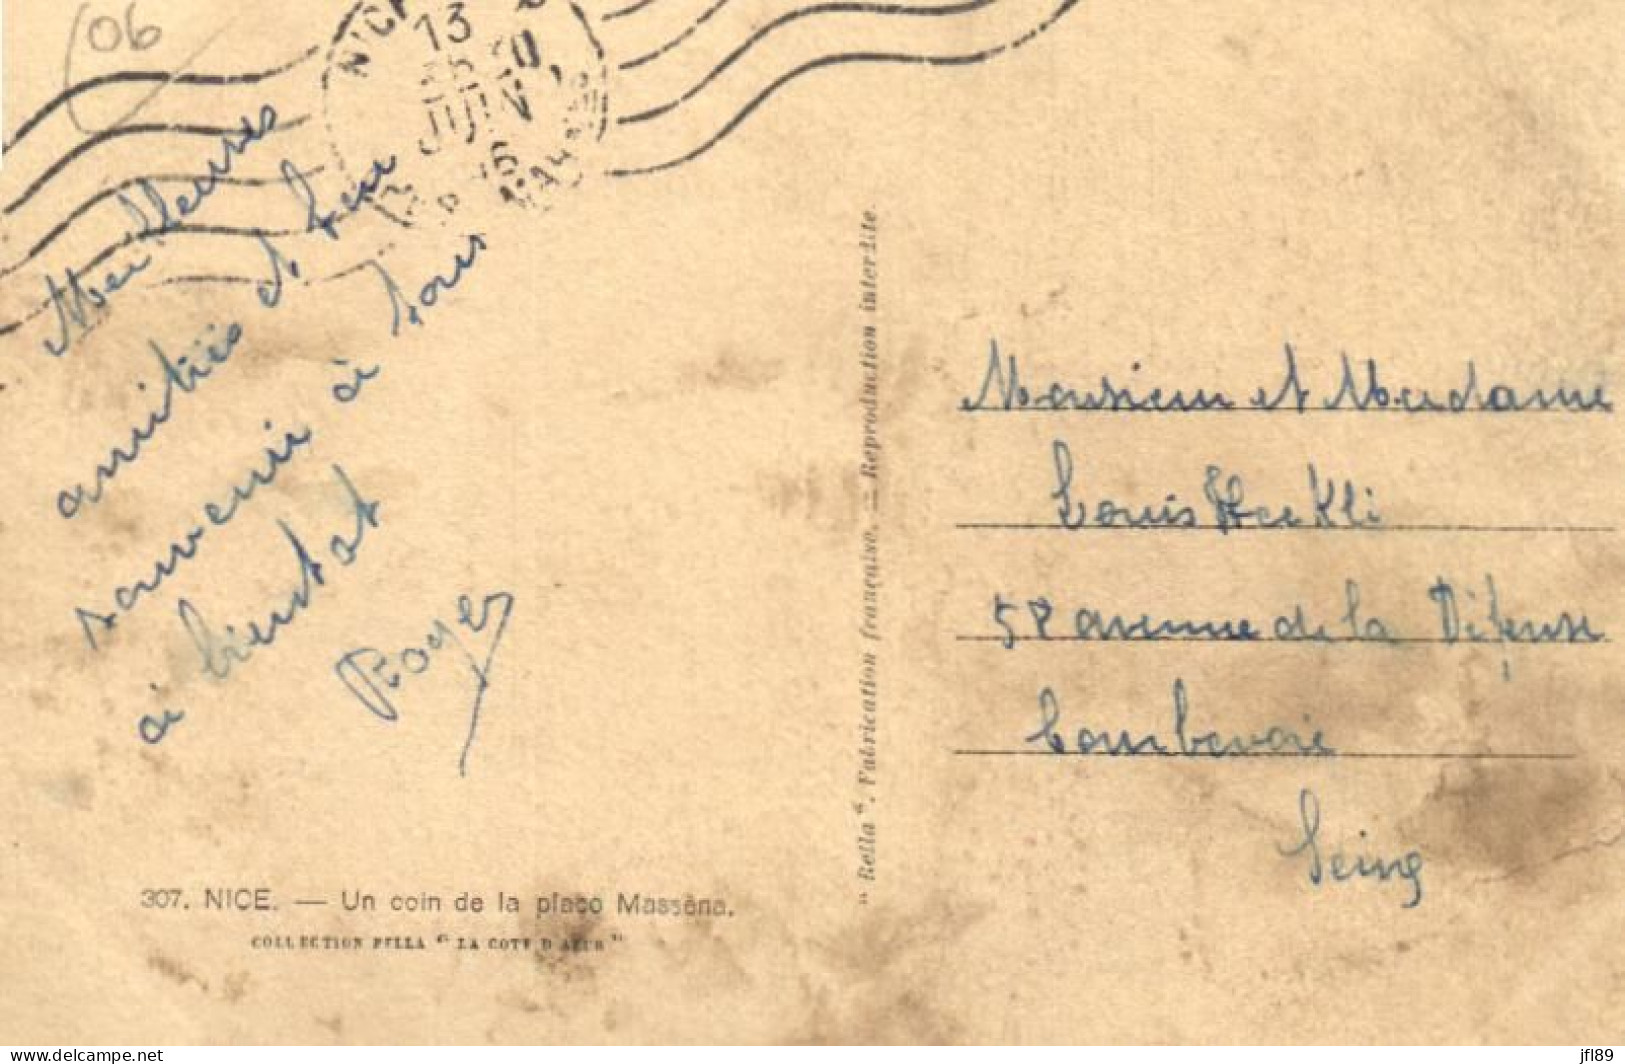 06
13
JUIN
Meilleures
amitiés et bon
souvenir à tous
à bientot
Roger
307. NICE. — Un coin de la place Massèna.
COLLECTION RELLA “ LA COTE D'AZUR ”
“ Rella “. Fabrication française. — Reproduction interdite.
Monsieur et Madame
Louis
58 avenue de la Défense
Courbevoie
Seine
delcampe.net
jfl89